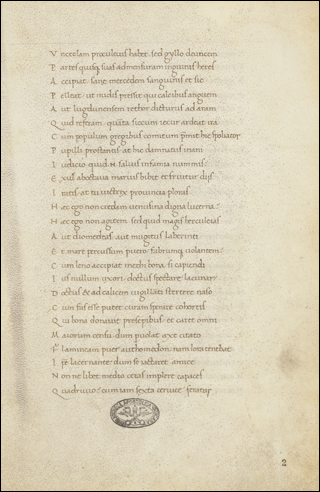 Unciolam proculeius habet sed gyllo deuncem
Partes quisq. suas ad mensuram inguinis heres
Accipiat sane mercedem sanguinis et sic
Palleat ut nudis pressit qui calcibus anguem
Aut lugdunensem rhetor dicturus ad aram
Quid referam quanta siccum iecur ardeat ira
Cum populum gregibus comitum premit hic spoliator
Pupilli prostantis at hic damnatus inani
Iudicio quid .N. saluis infamia nummis
Exul ab octaua marius bibit et fruitur diis
Iratis at tu uictrix prouincia ploras
Haec ego non credam uenusina digna lucerna
Haec ego non agitem sed quid magis heracleias
Aut diomedeas aut mugitus laberinti
Et mare percussum puero fabrumq. uolantem
Cum leno accipiat moechi bona si capiendi
Ius nullum uxori doctus spectare lacunar
Doctus et ad calicem uigilanti stertere naso
Cum fas esse putet curam sperare cohortis
Qui bona donauit presepibus et caret omni
Maiorum censu dum peruolat axe citato
Flaminiam puer automedon nam lora tenebat
Ipse lacernatae dum se iactaret amicae
Nonne libet medio ceras implere capaces
Quadriuio cum iam sexta ceruice feratur
2